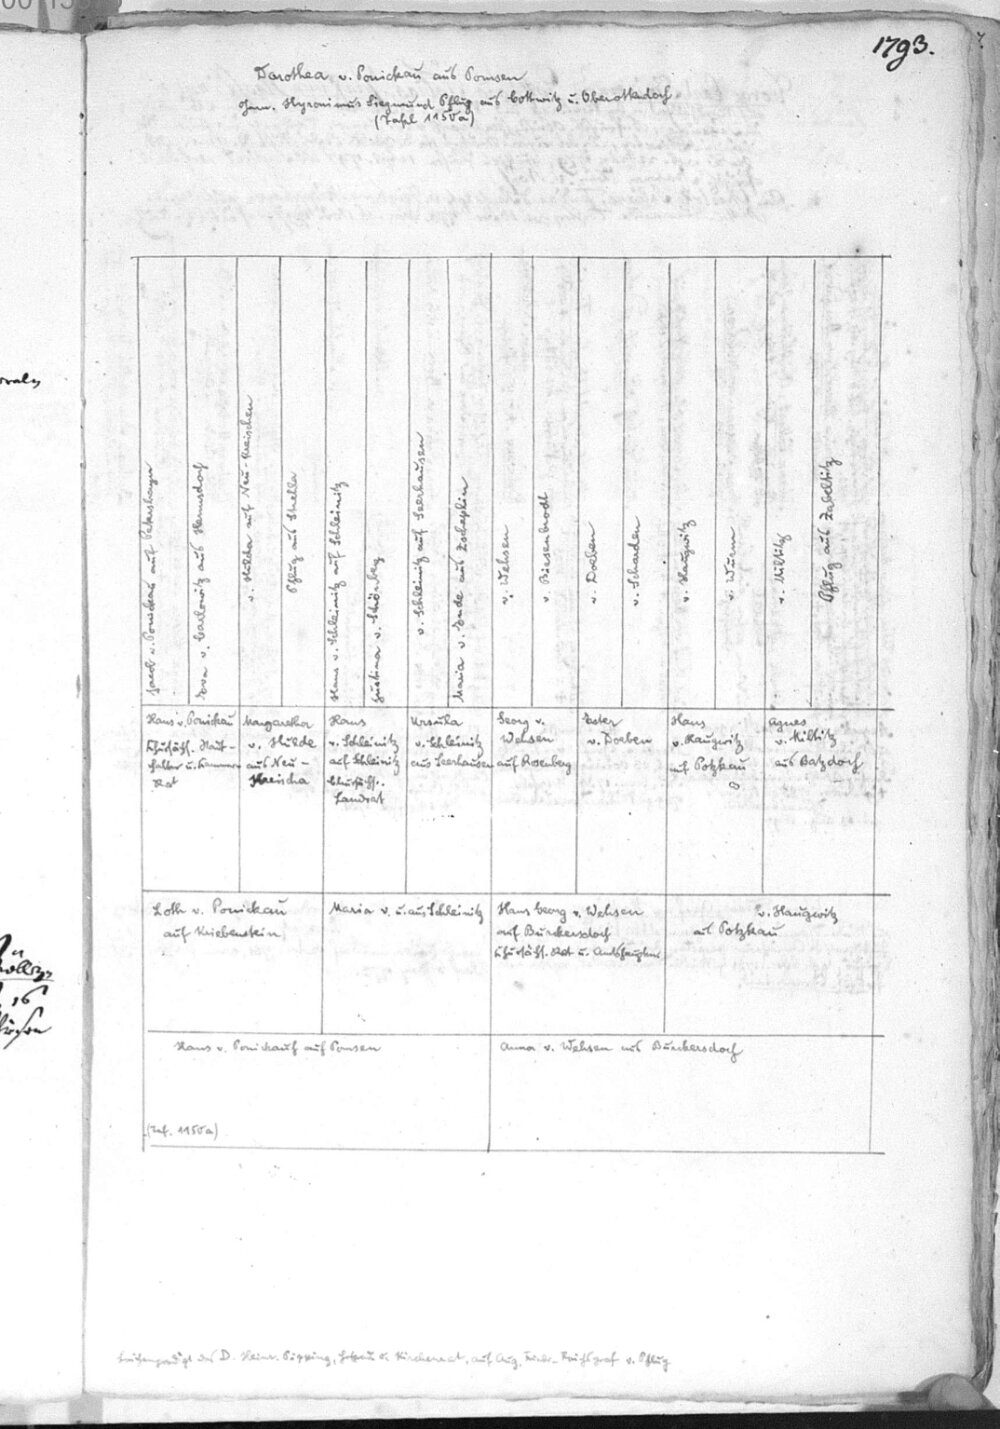 1793.
Dorothea v. Ponickau aus Pomsen
Gem. Hyronimus Siegmund Pflug aus Cottwitz u. Oberottendorf
(Tafel 1150a)
Jacob v. Ponickau auf Petershayn
Eva v. Carlowitz aus Hermsdorf
v. Hülda auf Neu-Kreischen
Pflug aus Strella
Hans v. Schleinitz auf Schleinitz
Justina v. Schönberg
v. Schleinitz auf Seerhausen
Maria v. Ende aus Zscheplin
v. Wehsen
v. Biesenbrodt
v. Doeben
v. Scharden
v. Haugwitz
v. Wurm
v. Miltitz
Pflug aus Zabeltitz
Hans v. Ponickau
Churfächs.
u. Kammer
Rat
Margaretha
v. Hülde
aus Neu-
Kreischa
Hans
v. Schleinitz
auf Schleinitz
Churfächs.
Landrat
Ursula
v. Schleinitz
aus Seerhausen
Georg v.
Wehsen
auf Rosenberg
Ester
v. Doeben
Hans
v. Haugwitz
auf Potzkau
Agnes
v. Miltitz
aus Batzdorf
Loth v. Ponickau
auf Kriebenstein
Maria v. u. aus Schleinitz
Hans Georg v. Wehsen
auf Burckersdorf
Churfächs. Rat u. Amtshauptm.
v. Haugwitz
aus Potzkau
Hans v. Ponickau auf Pomsen
(Taf. 1150a)
Anna v. Wehsen aus Burckersdorf
Leichenpredigt des D. Heinr. Pipping, u. Kirchenrat, auf Aug. Reichsgraf v. Pflug